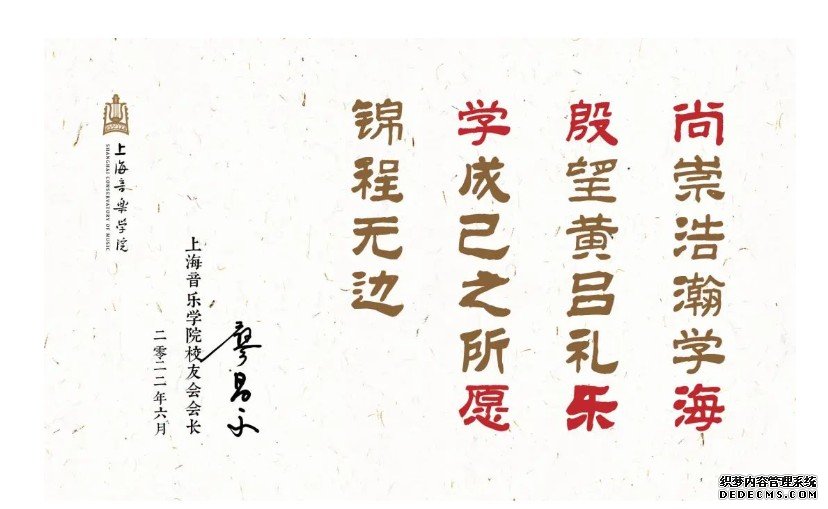 尚崇浩瀚学海
殷望黄吕礼乐
学成己之所愿
锦程无边
廖昌永
上海音乐学院校友会会长
二零二二年六月
上海音樂学院
SHANGHAI CONSERVATORY OF MUSIC
织梦内容管理系统
DEDECMS.COM